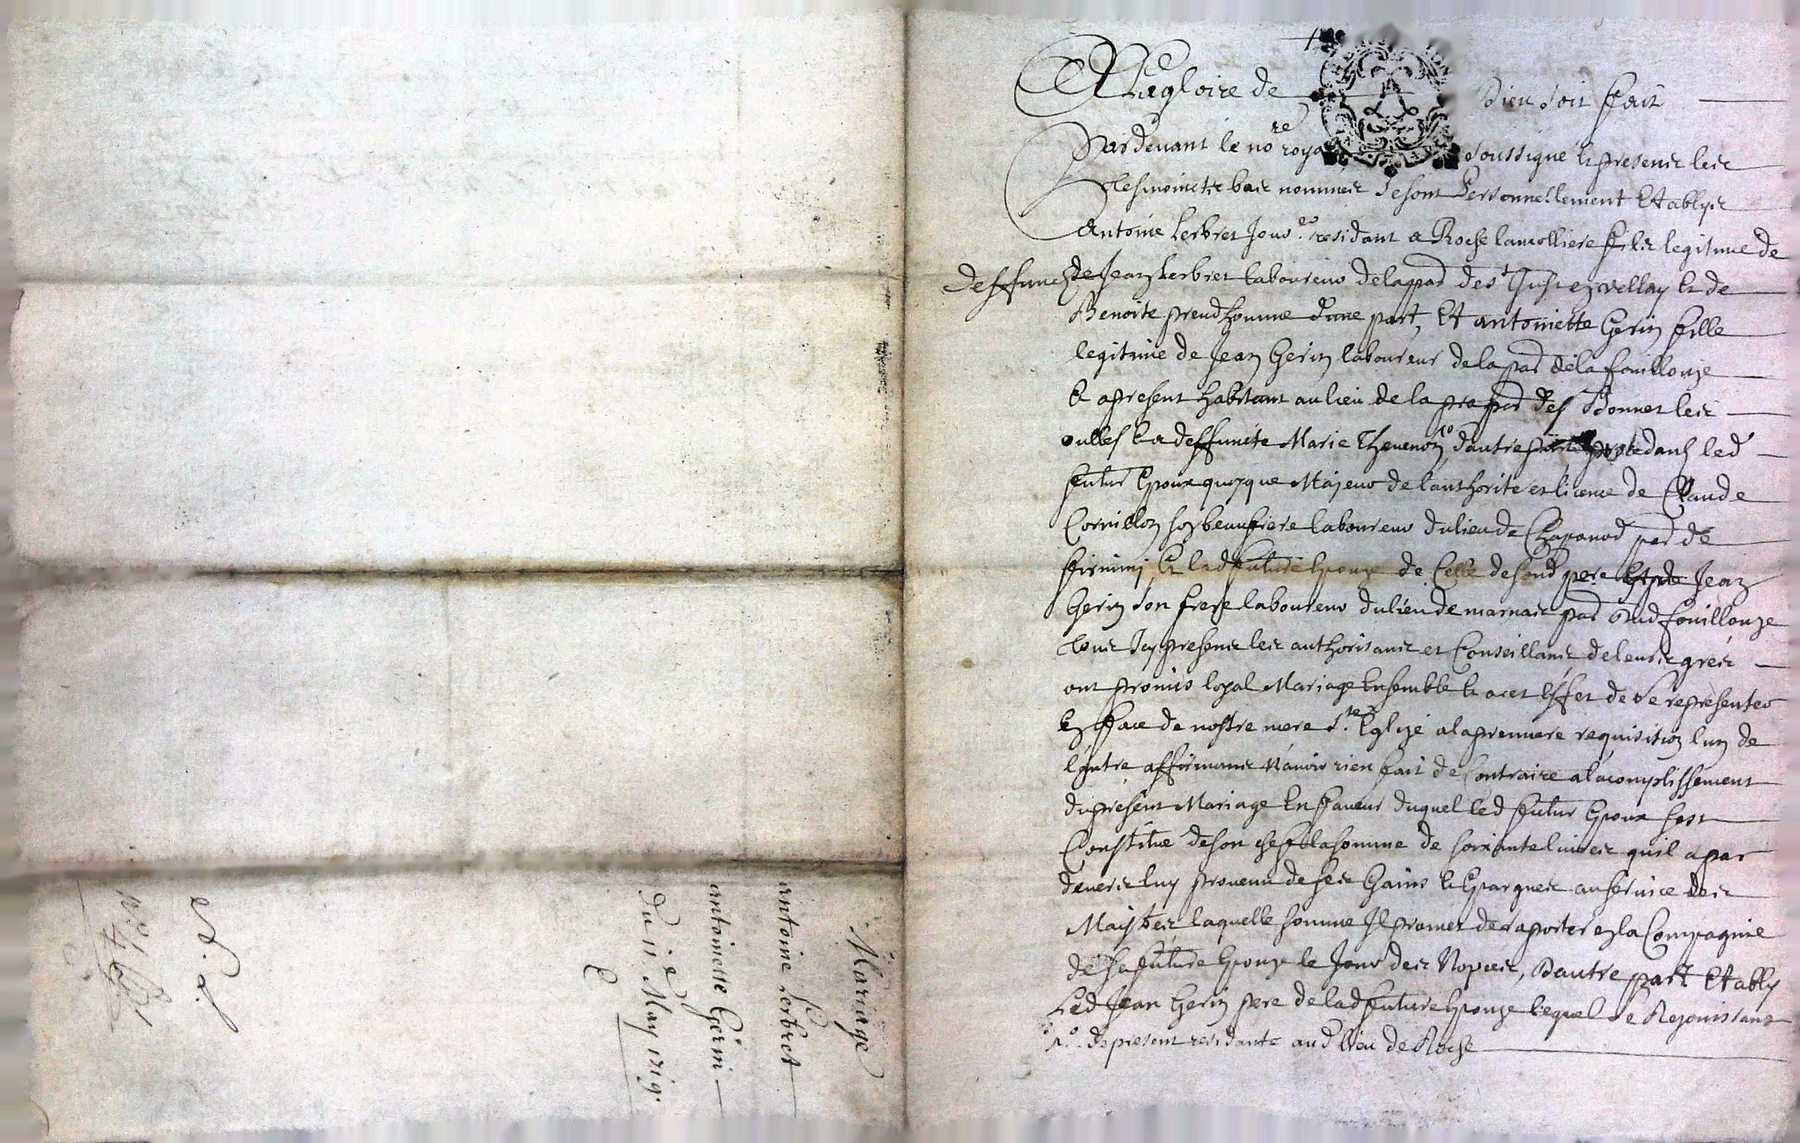 Mariage
antoine Lerbret
antoinette Gerin
du 11e May 1719.
A la gloire de Dieu soit fait
Pardevant le nore royal soussigné et presents les
tesmoints bas nommés se sont Personnellement Establys
Antoine Lerbret Jour.al residant a Roche lamolliere fils legitime de
deffunct de Jean Lerbret laboureur de la par de St Just en vellay et de
Benoite preudhomme d'une part, Et antoinette Gerin fille
legitime de Jean Gerin laboureur de la par de la fouillouze
et apresent habitant au lieu de la par de St Bonnet les
oulles et a deffuncte Marie Thevenon d'autre part procedants led
futur Epoux quoyque Majeur de l'authorité et licence de Claude
Cornillon son beaufrere laboureur du lieu de Chaponod par de
firminy, Et lad future Epouze de Celle de sond pere Jean
Gerin son frere laboureur du lieu de marnas par dud fouillouze
tous Icy presents les authorisants et Conseillants de leurs grés
ont promis loyal Mariage Ensemble et a cet Effet de se representer
En fface de nostre mere Ste Eglize a la premiere requisition l'un de
l'autre affirmants n'avoir rien fait de Contraire a l'acomplissement
du present Mariage En ffaveur duquel led futur Epoux sest
Constitué de son chef la somme de soixante livres qu'il a par
devers luy provenu de ses Gains et Epargnes au service des
Maistres laquelle somme Il promet de raporter en la Compagnie
de sa future Epouze le Jour des Nopces, D'autre part Estably
Led Jean Gerin pere de lad future Epouze lequel se Rejouissant
de present residante aud lieu de Roche